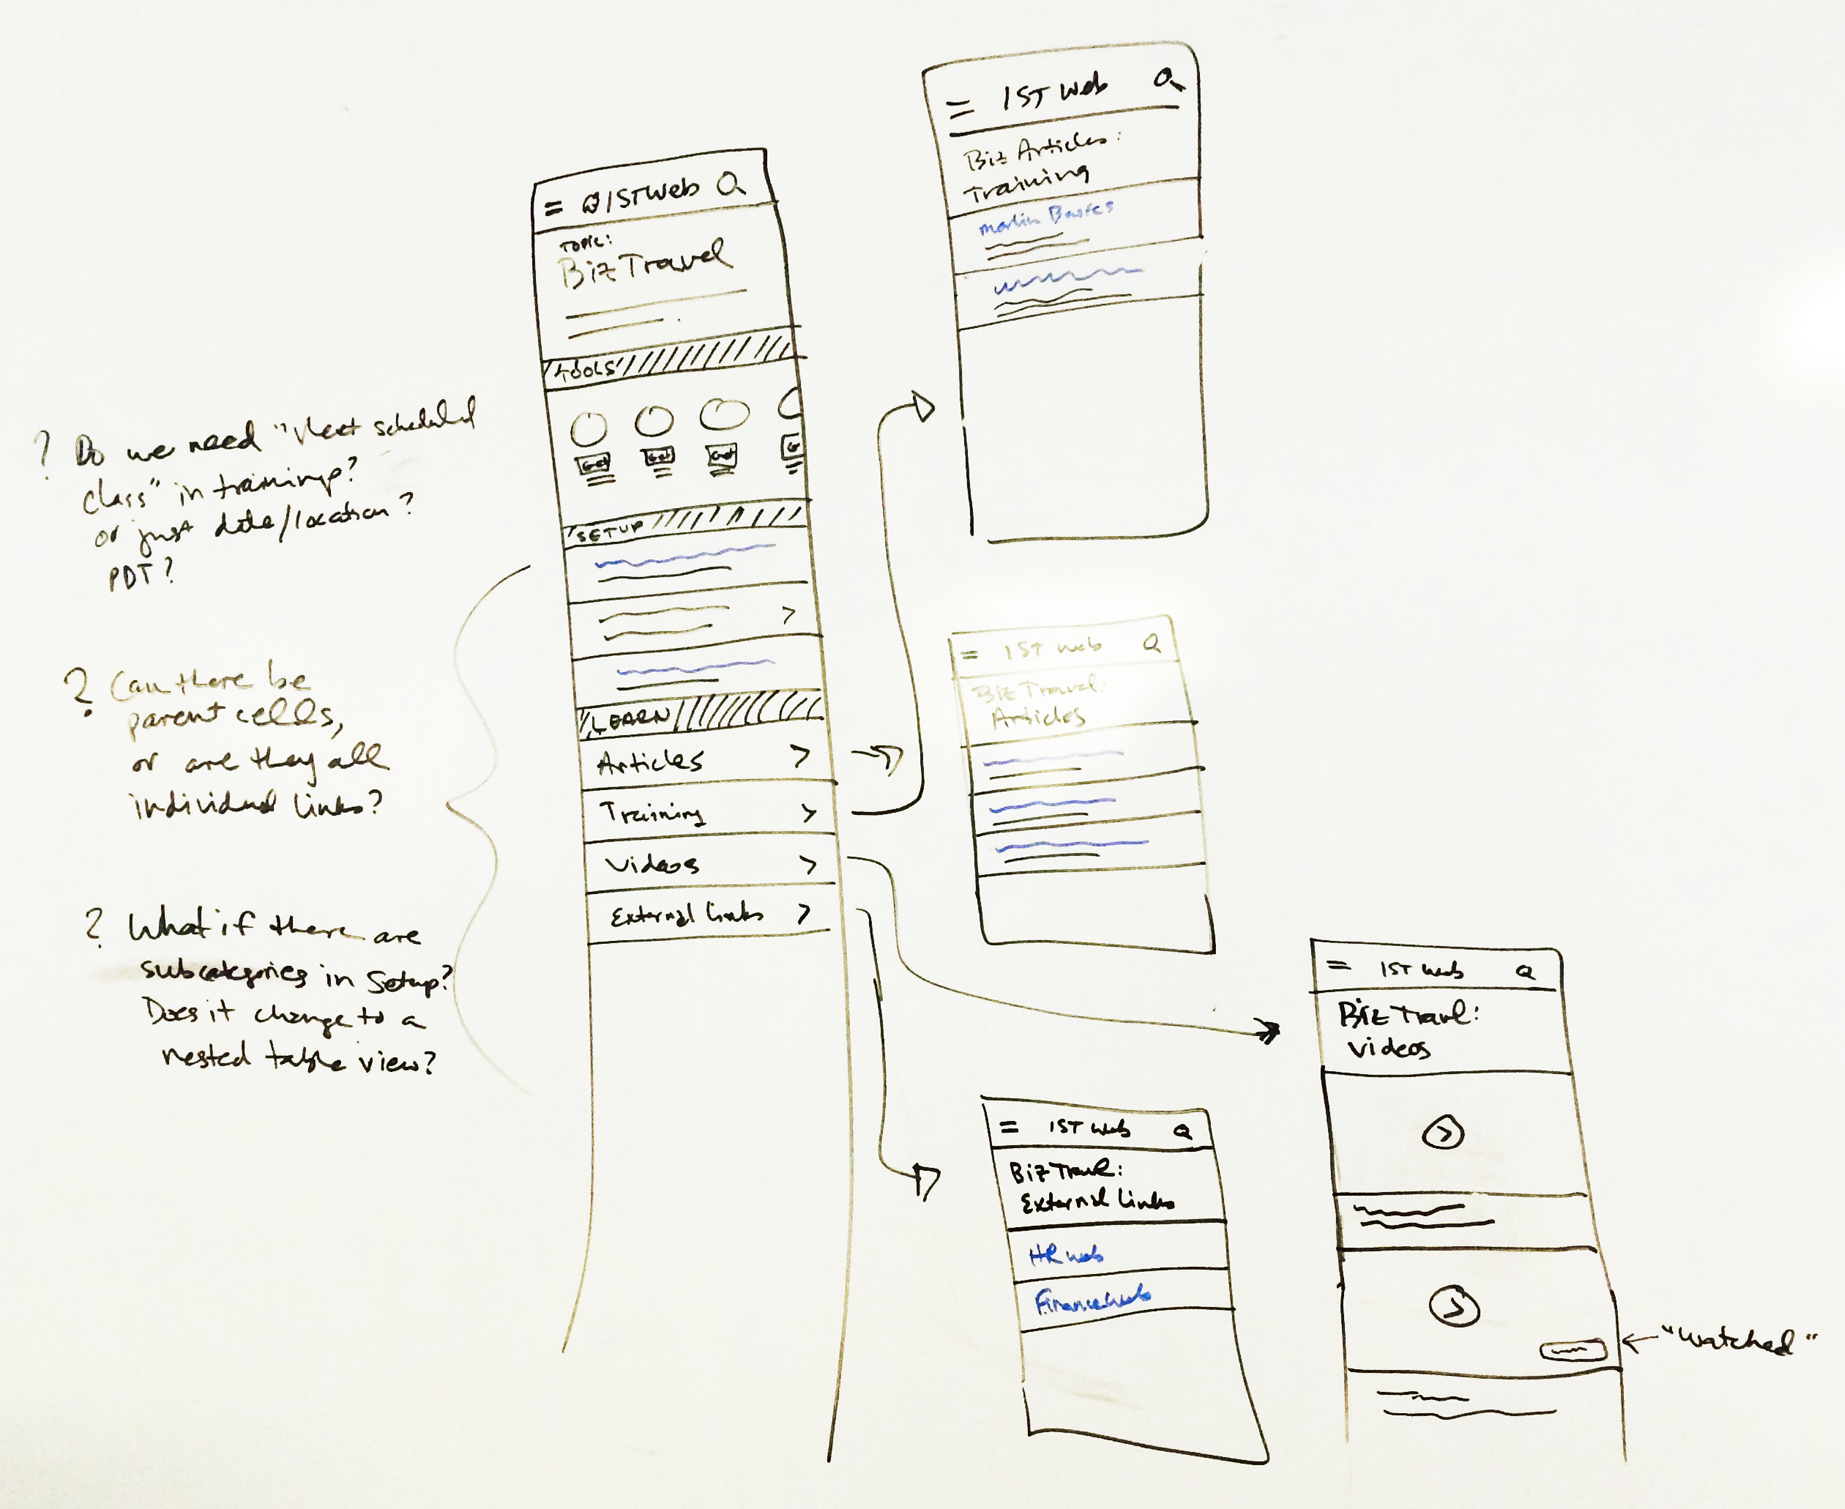 ? Do we need "Next scheduled
class" in training?
or just date/location?
PDT?
? Can there be
parent cells,
or are they all
individual links?
? What if there are
subcategories in Setup?
Does it change to a
nested table view?
ISTWeb
TOPIC:
Biz Travel
TOOLS
Get Get Get
SETUP
LEARN
Articles >
Training >
Videos >
External links >
IST Web
Biz Articles:
Training
Merlin Basics
IST Web
Biz Travel:
Articles
IST Web
Biz Travel:
External Links
HR web
Finance web
IST Web
Biz Travel:
Videos
"Watched"